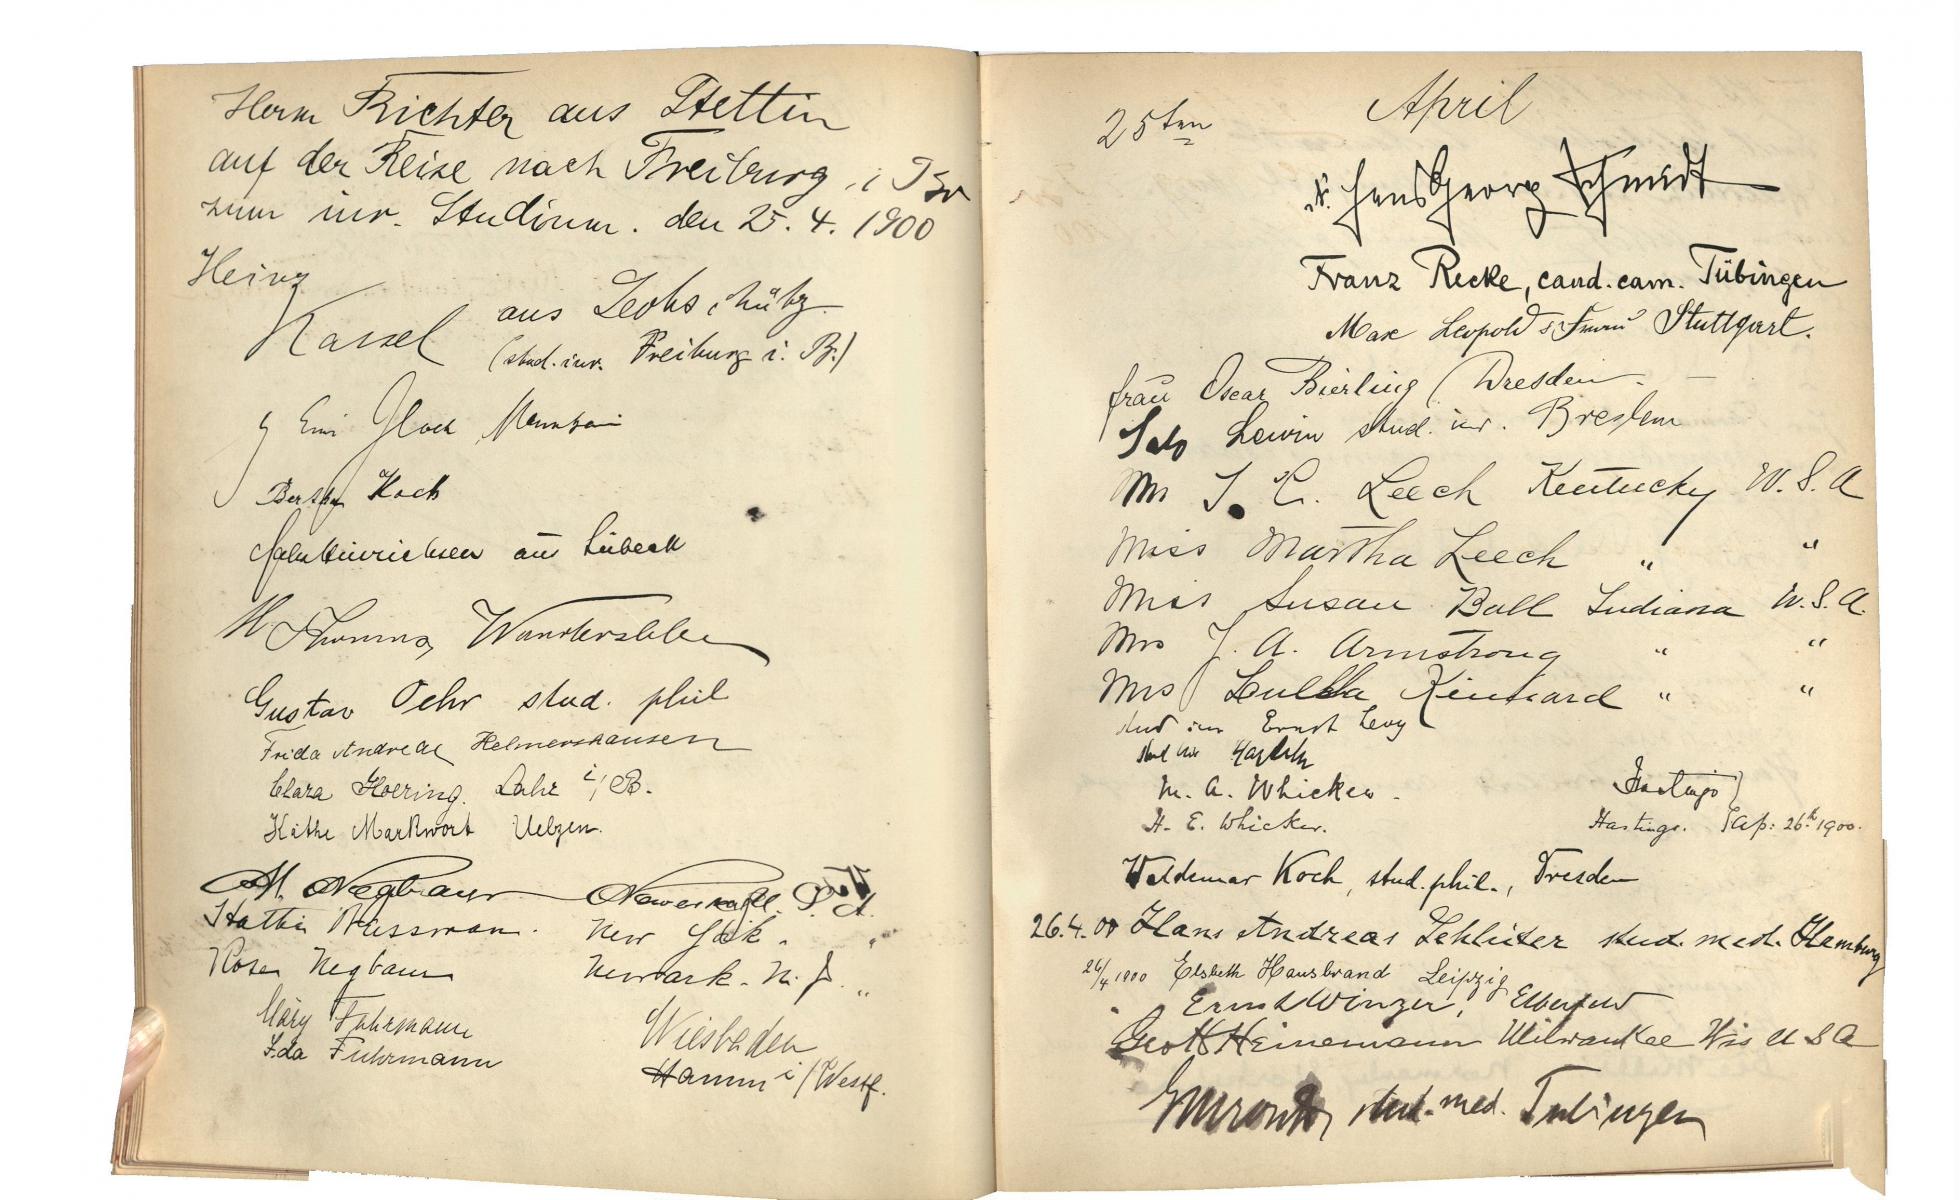 Herm Richter aus Stettin
auf der Reise nach Freiburg i Br
zum iur. Studium. den 25. 4. 1900
Heinz
Kassel aus Leobschütz
(stud. iur. Freiburg i. B.)
Glock
Bertha Koch
Hinrichsen aus Lübeck
H. Thomas, Wandersleben
Gustav Oehr stud. phil
Frida Andreae Helmershausen
Clara Hoering. Lahr i, B.
Käthe Markwort Uelzen.
M. Negbaur Newark
Hattie Bussman. New York. "
Rosa Negbaur Newark. N. J. "
Mary Fuhrmann Wiesbaden
Ida Fuhrmann Hamm i/Westf.
25ten April
Hans Georg Schmidt
Franz Recke, cand. cam. Tübingen
Max Leopold & Frau Stuttgart.
Frau Oscar Bierling Dresden. —
Lewin stud. iur. Breslau
Mr J. C. Leech Kentucky U. S. A
Miss Martha Leech " "
Miss Susan Ball Indiana U. S. A.
Mrs J. A. Armstrong " "
Mrs Lulla Kinnard " "
stud iur Ernst Levy
stud iur
M. A. Whicker. Hastings }
H. E. Whicker. Hastings. } Ap: 26th 1900.
Waldemar Koch, stud. phil., Dresden
26.4.00 Hans Andreas Schlüter stud. med. Hamburg
26/4 1900 Elsbeth Hausbrand Leipzig
Ernst Winzer, Elberfeld
Geo H Heinemann Milwaukee Wis U S A
stud. med. Tübingen